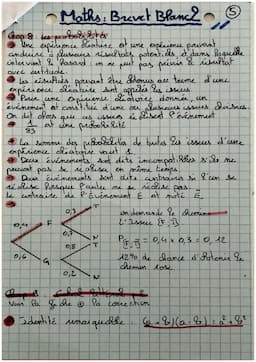 Maths : Brevet Blanc 2
5
Chap 8 les probabilités
→ Une expérience aléatoire est une expérience pouvant
conduire à plusieurs résultats potentiels et dans laquelle
intervient le hasard : on ne peut pas prévoir le résultat
avec certitude.
→ Les résultats pouvant être obtenus au terme d'une
expérience aléatoire sont appelés les issues
→ Pour une expérience aléatoire donnée, un
événement est constitué d'une ou plusieurs issues
On dit alors que ces issues réalisent l'événement
est une probabilité
→ La somme des probabilités de toutes les issues d'une
expérience aléatoire vaut 1.
→ Deux événements sont dits incompatibles s'ils ne
peuvent pas se réaliser en même temps
→ Deux événements sont dits contraires si l'un se
réalise lorsque l'autre ne se réalise pas.
Le contraire de l'Événement E est noté E̅.
0,3
T
on demande le chemin
0,4
F
l'issue (F, T)
N
0,6
G
0,8
T
P(F, T) = 0,4 × 0,3 = 0,12
0,2
N
12% de chance d'obtenir le
chemin
Voir la fiche la correction
Identité remarquable : (a+b)(a-b) = a²-b²